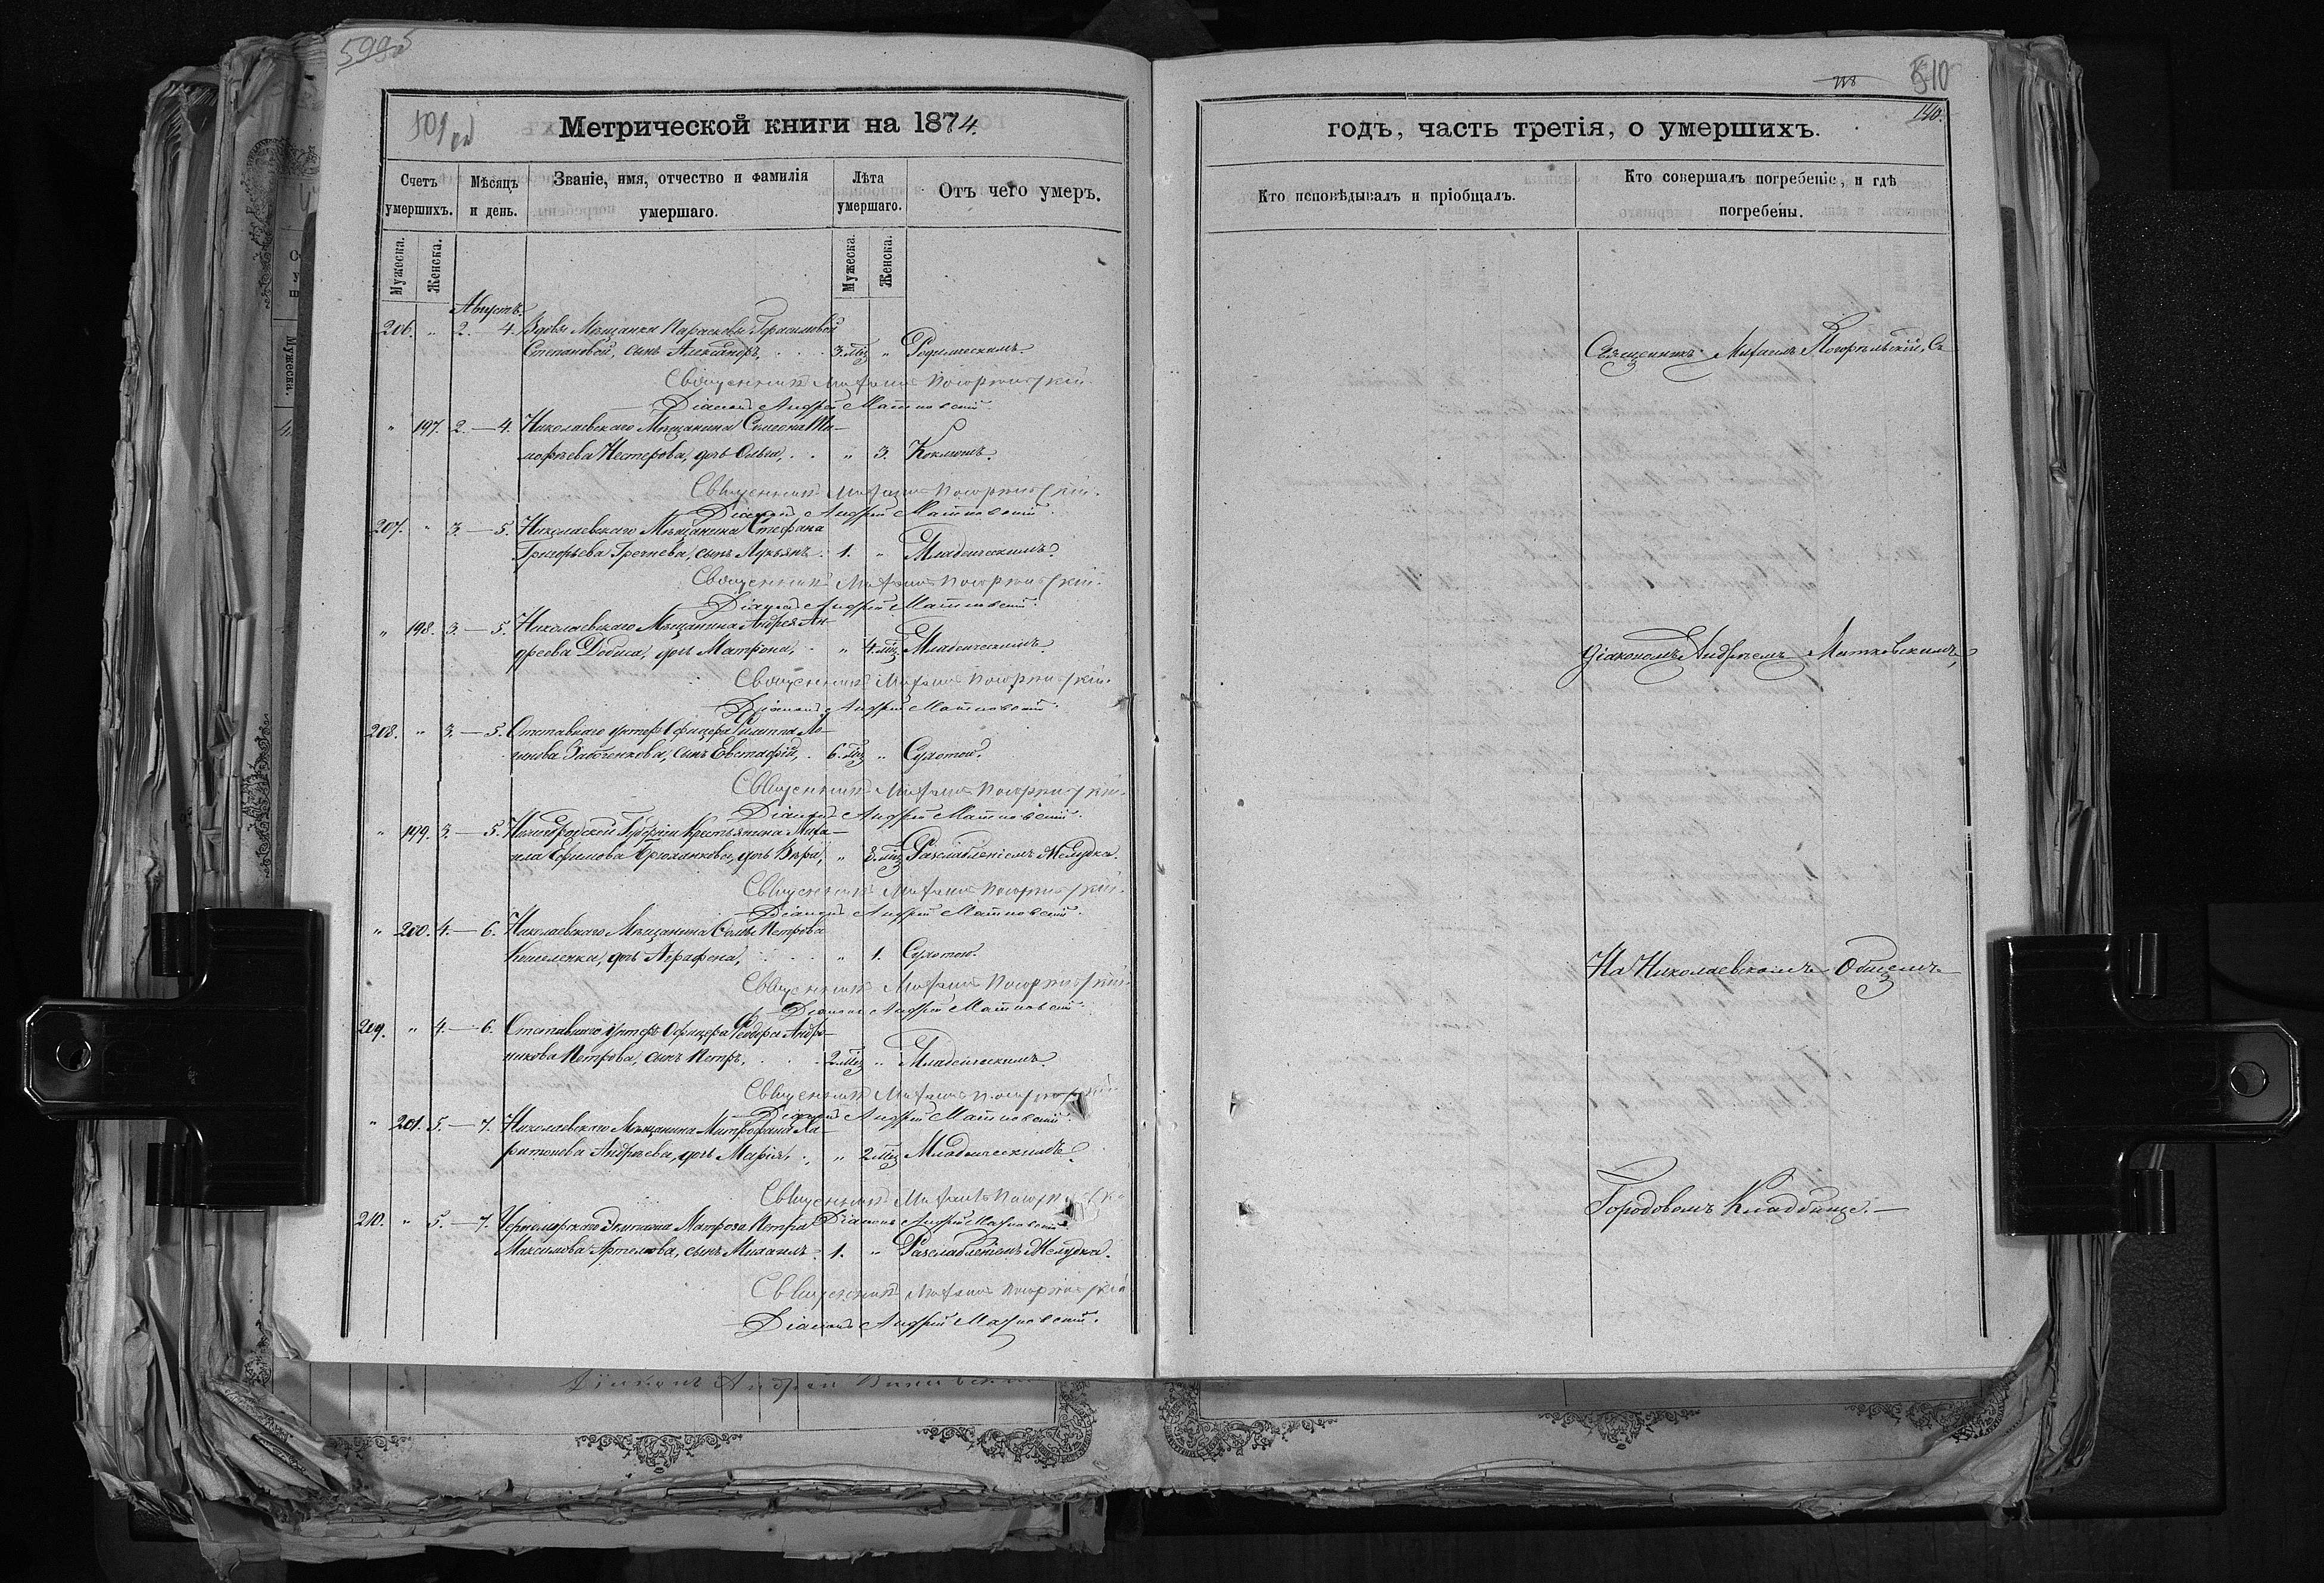 599
501 об
Метрической книги на 1874.
Счетъ умершихъ.
Мѣсяцъ и день.
Званіе, имя, отчество и фамилія умершаго.
Лѣта умершаго.
Отъ чего умеръ.
Мужеска.
Женска.
Мужеска.
Женска.
Августъ.
206. " 2. — 4. Вдовы Мѣщанки Параскевы Герасимовой
Степановой, сынъ Александръ, 3. мѣц " Родимческимъ.
Священникъ Михаилъ Погорѣльскій.
Діаконъ Андрей Матковскій.
" 197. 2. — 4. Николаевскаго Мѣщанина Симеона Ти-
мофѣева Нестерова, дочь Ольга, " 3. Коклюшъ.
Священникъ Михаилъ Погорѣльскій.
Діаконъ Андрей Матковскій.
207. " 3. — 5. Николаевскаго Мѣщанина Стефана
Григорьева Гречнева, сынъ Лукьянъ. 1. " Младенческимъ.
Священникъ Михаилъ Погорѣльскій.
Діаконъ Андрей Матковскій.
" 198. 3. — 5. Николаевскаго Мѣщанина Андрея Ан-
дреева Добиса, дочь Матрона, " 4. мѣц Младенческимъ.
Священникъ Михаилъ Погорѣльскій.
Діаконъ Андрей Матковскій.
208. " 3. — 5. Отставнаго унтеръ Офицера Филиппа Ло-
гинова Забченкова, сынъ Евстафій, 6. мѣц " Сухотою.
Священникъ Михаилъ Погорѣльскій.
Діаконъ Андрей Матковскій.
" 199. 3. — 5. Нижегородской Губерніи Крестьянина Миха-
ила Ефимова Брюханкова, дочь Вѣра, " 8. мѣц Разслабленіемъ Желудка.
Священникъ Михаилъ Погорѣльскій.
Діаконъ Андрей Матковскій.
" 200. 4. — 6. Николаевскаго Мѣщанина Петрова
Кошеленка, дочь Аграфена, " 1. Сухотою.
Священникъ Михаилъ Погорѣльскій.
Діаконъ Андрей Матковскій.
209. " 4. — 6. Отставнаго унтеръ Офицера Федора Андро-
никова Петрова, сынъ Петръ, 2. мѣц " Младенческимъ.
Священникъ Михаилъ Погорѣльскій
Діаконъ Андрей Матковскій.
" 201. 5. — 7. Николаевскаго Мѣщанина Митрофана Ха-
ритонова Андреева, дочь Марія, " 2 мѣц Младенческимъ.
Священникъ Михаилъ
Діаконъ Андрей Матковскій.
210. " 5. — 7. Черноморскаго Экипажа Матроза Петра
Максимова Артемова, сынъ Михаилъ. 1. " Разслабленіемъ Желудка.
Священникъ Михаилъ Погорѣльскій
Діаконъ Андрей Матковскій.
510
140.
годъ, часть третія, о умершихъ.
Кто исповѣдывалъ и пріобщалъ.
Кто совершалъ погребеніе, и гдѣ погребены.
Священникъ Михаилъ Погорѣльскій, Съ
Діакономъ Андреемъ Матковскимъ,
На Николаевскомъ Общемъ
Городовомъ Кладбище. —